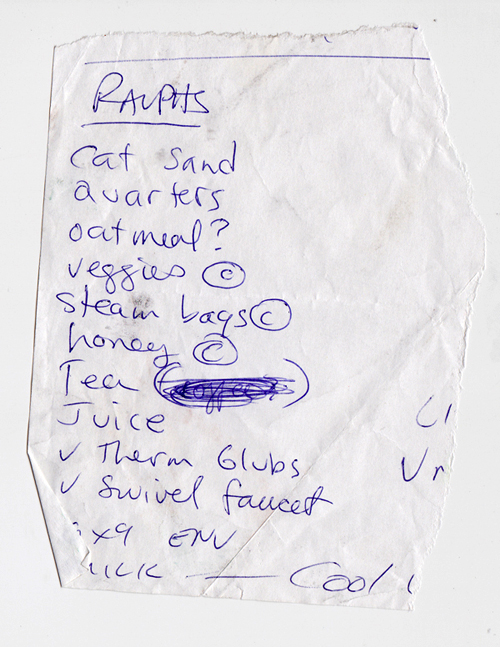 RALPHS
cat sand
quarters
oatmeal?
veggies ©
steam bags ©
honey ©
Tea (coffee)
Juice
✓ Therm Glubs
✓ Swivel faucet
x9 ENV
— Cool